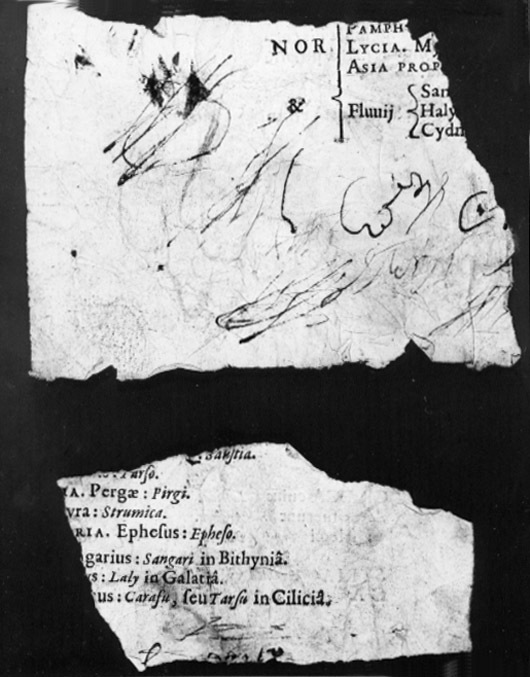 PAMPH
NOR LYCIA. M
ASIA PROP
San
& Fluuij Haly
Cydn
: Sauſtia.
: Tarſo.
IA. Pergæ : Pirgi.
yra : Strumica.
RIA. Epheſus : Epheſo.
ngarius : Sangari in Bithyniâ.
ys : Laly in Galatiâ.
nus : Caraſu, ſeu Tarſu in Ciliciâ.